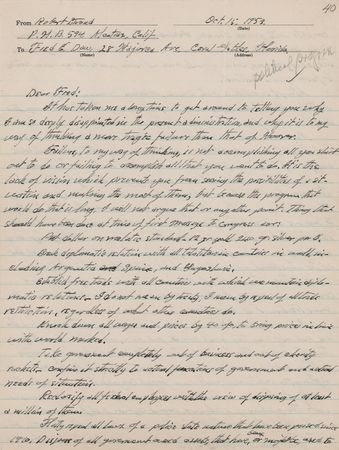 40
From Robert Stroud Oct. 16. 1953.
(Name) (Date)
P.M.B. 594 Calif.
To Fred E. Daw, 28 Majorca Ave Coral Gables, Florida
(Name) (Address)
political program
Dear Fred:
It has taken me a long time to get around to telling you why
I am so deeply disappointed in the present administration, and why it is to my
way of thinking a more tragic failure than that of Hoover.
Failure, to my way of thinking, is not accomplishing all you start
out to do or failing to accomplish all that you want to do. It is the
lack of vision which prevents you from seeing the possibilities of a sit-
uation and making the most of them, but since the program that
would do that is long, I will not argue that or any other point. Things that
should have been done at time of first message to Congress are:
Put dollar on metallic standard, gold or silver
Break diplomatic relations with all countries in world, in-
cluding Argentina Spain, and Yugoslavia.
Establish free trade with all countries with which we maintain diplo-
matic relations. I do not mean by treaty, I mean by repeal of all trade
restrictions, regardless of what other countries do.
Knock down all wages and prices by to bring prices in line
with world market.
Take government completely out of business and out of charity
rackets. confine it strictly to actual functions of government and actual
needs of situation.
all federal employees with the view of disposing of at least
a million of them.
repeal all laws of a police state nature that have been passed since
1910. Dispose of all government assets that have, or used to